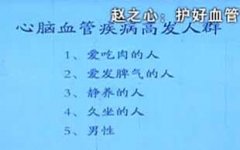 赵之心：护好血管
心脑血管疾病高发人群
1、爱吃肉的人
2、爱发脾气的人
3、静养的人
4、久坐的人
5、男性